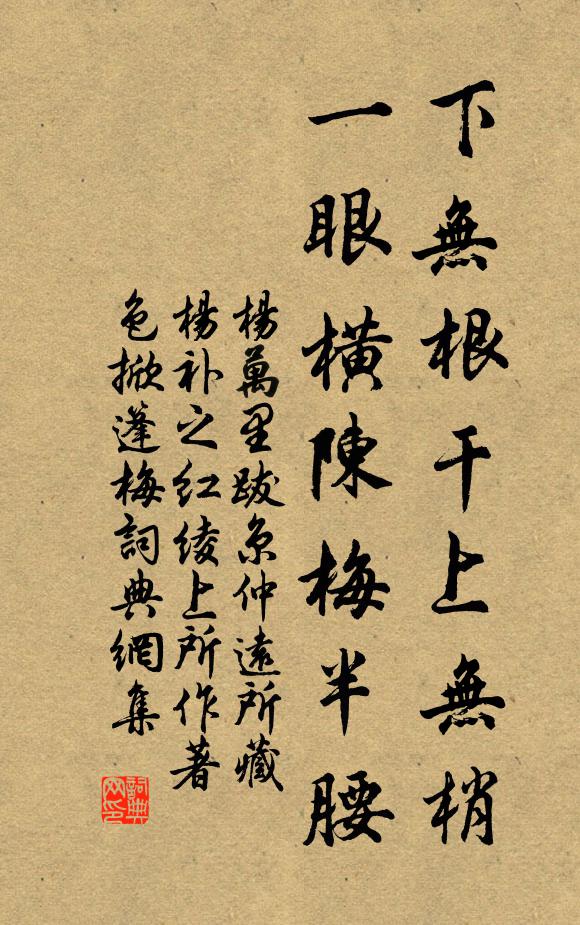 下無根干上無梢
一眼橫陳梅半腰
楊萬里跋京仲遠所藏
楊补之红绫上所作著
色掀蓬梅詞典網集
詞典网印